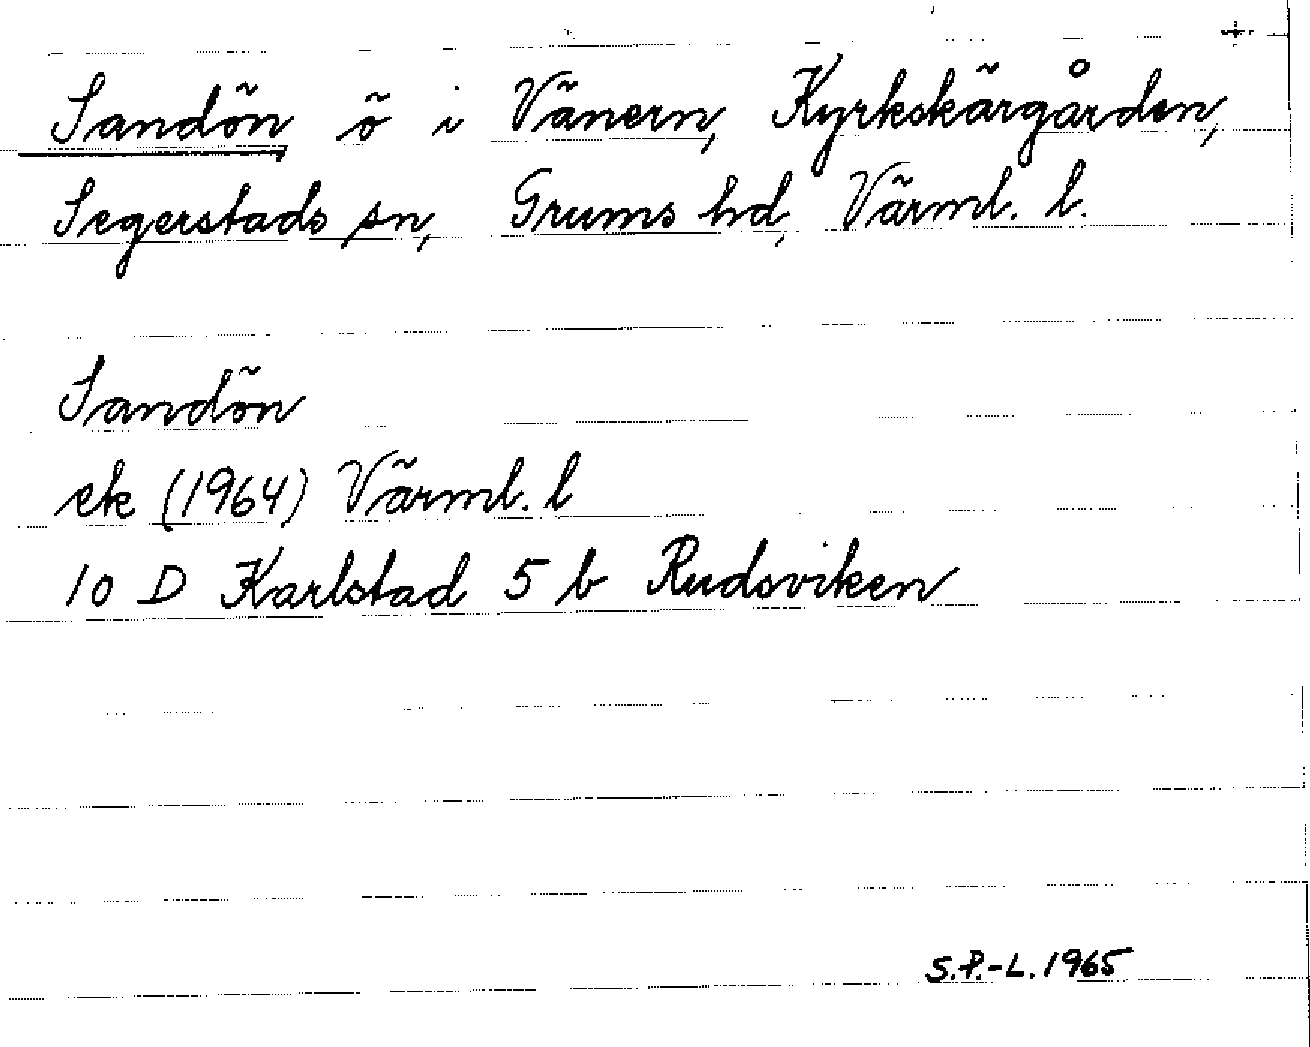 Sandön ö i Vänern, Kyrkskärgården,
Segerstads sn, Grums hd, Värml. l.
Sandön
ek (1964) Värml. l
10 D Karlstad 5 b Rudsviken
S.P.-L. 1965